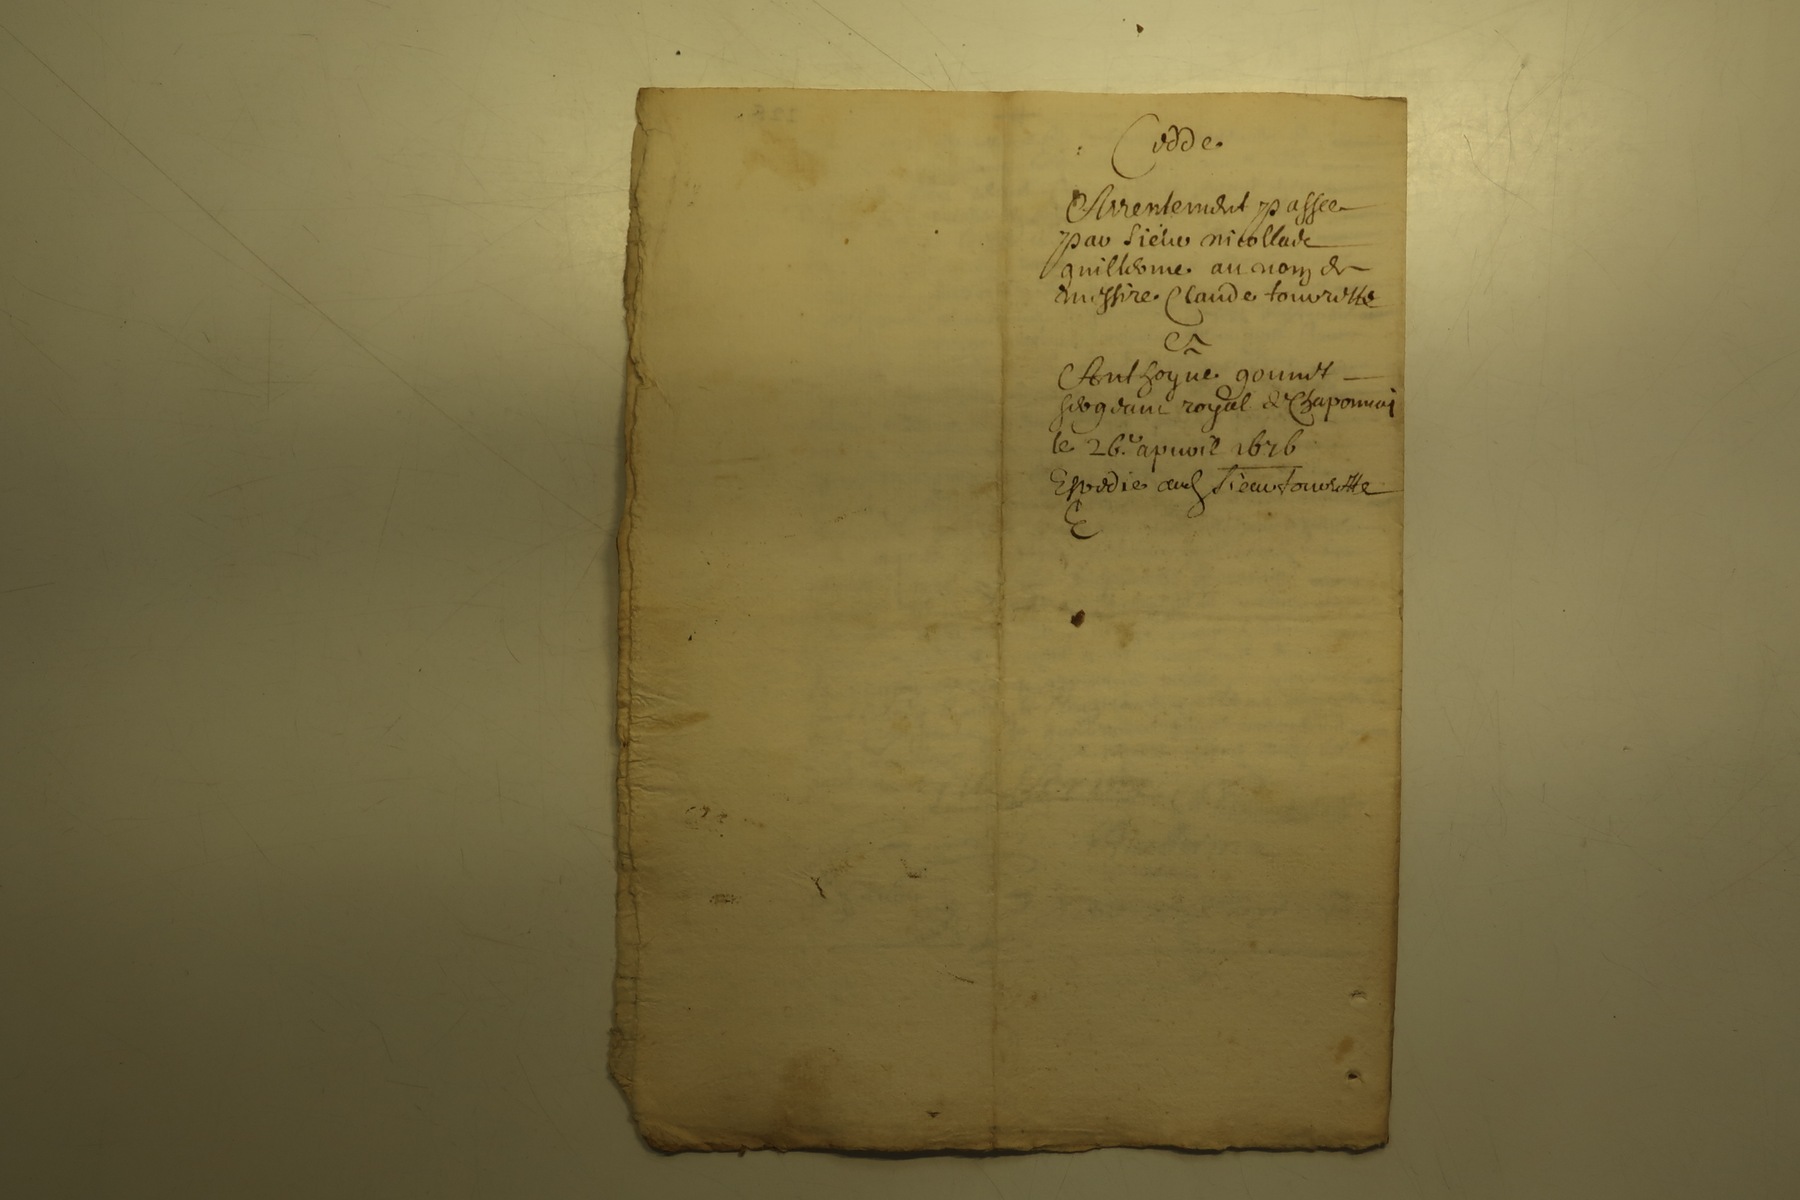 Cedde
Arrentement passee
par Sieur nicollade
guilleome au nom de
messire Claude tourette
A
Anthoyne gounet
sergeant royal de Chaponnai
le 26.e apvril 1676
Expedie aud Sieur tourette